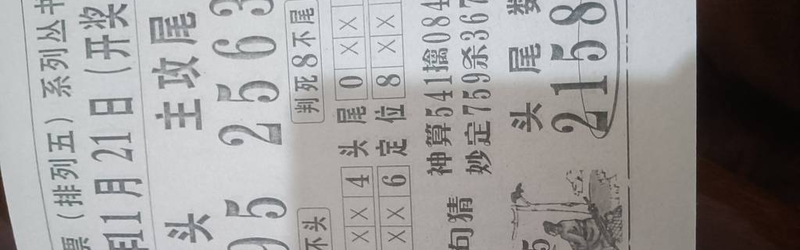 票（排列五）系列丛书
年11月21日（开奖
头 主攻尾
95 2563
不头 判死8不尾
X X 4 头尾 0 X X
X X 6 定位 8 X X
句猜 神算541擒084
妙定759杀367
头尾数
2158